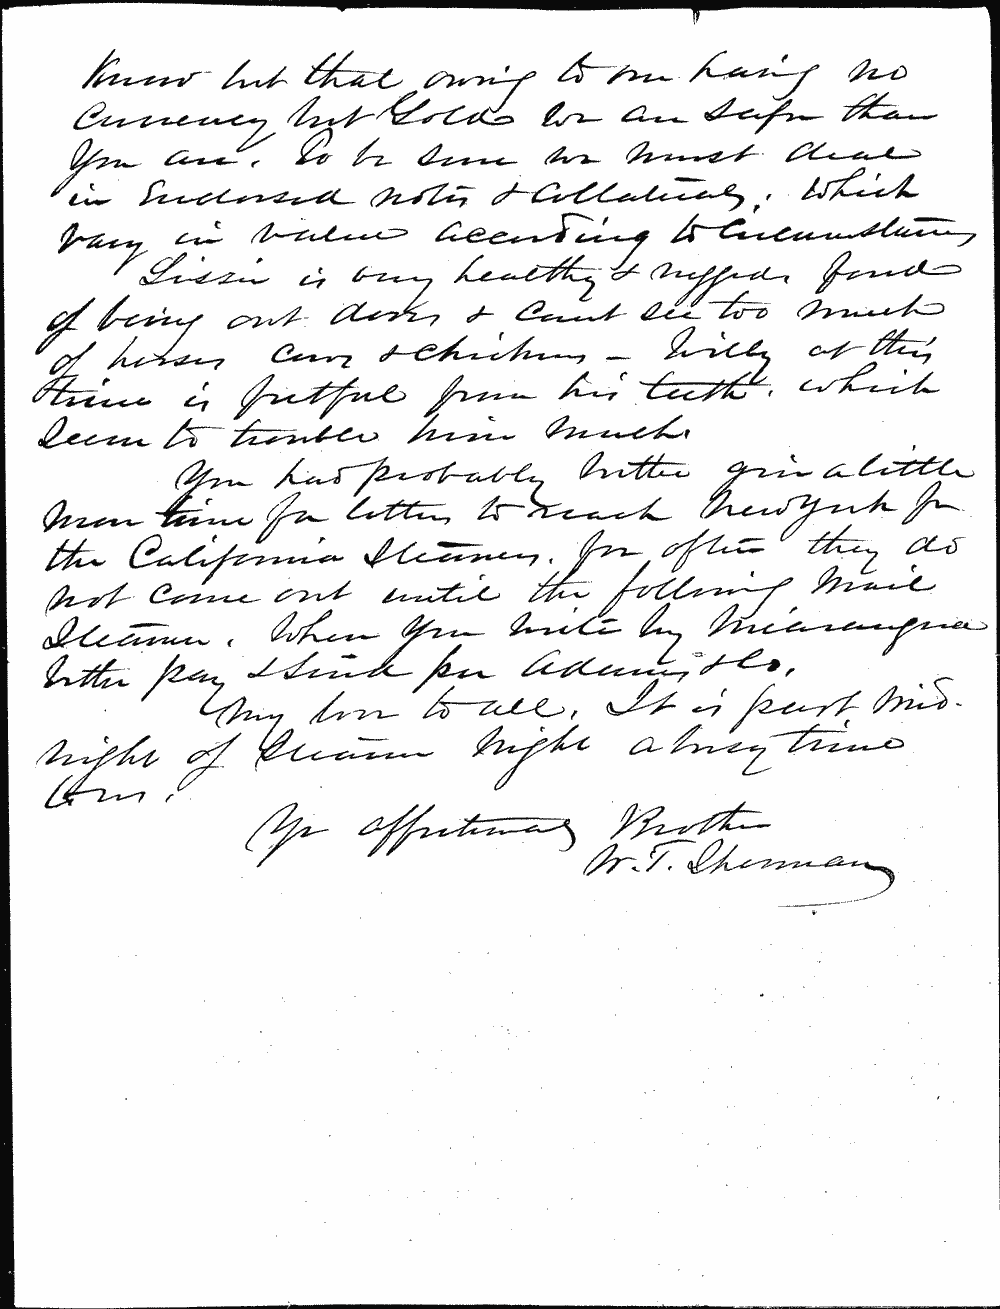 Know but that owing to our having no
currency but Gold we are safer than
you are. To be sure we must deal
in Endorsed notes & Collaterals, which
vary in value according to Circumstances
Lizzie is very healthy & rugged, fond
of being out doors & cant see too much
of horses cows & chickens – Willy at this
time is fretful from his teeth, which
seem to trouble him much.
You had probably better give a little
more time for letters to reach New York for
the California Steamers, for often they do
not come out until the following Mail
Steamer. When you write by Nicaragua
better pay & send per Adams & Co.
My love to all. It is past mid-
night of Steamer Night a busy time

Yr affectionate Brother
W. T. Sherman